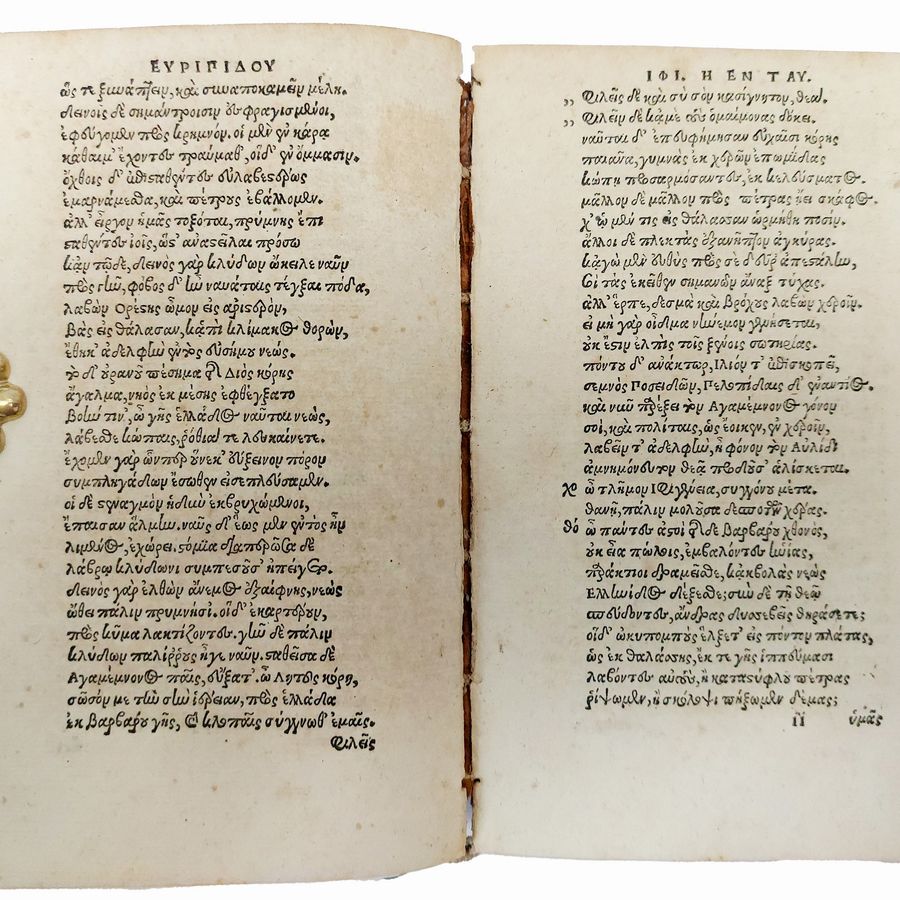 ΕΥΡΙΠΙΔΟΥ
ὥς τε ξυνάπτειν, καὶ συναποκαμεῖν μέλη.
δεινοῖς δὲ σημάντροισιν ἐσφραγισμένοι,
ἐφεύγομεν πρὸς κρημνόν. οἱ μὲν ἐν κάρᾳ
κάθαιμ' ἔχοντες τραύμαθ', οἱδ' ἐν ὄμμασιν.
ὄχθοις δ' ἐπισταθέντες εὐλαβεστέρως
ἐμαρνάμεσθα, καὶ πέτρους ἐβάλλομεν.
ἀλλ' εἶργον ἡμᾶς τοξόται, πρύμνης ἔπι
σταθέντες ἰοῖς, ὥς' ἀναστεῖλαι πρόσω
κἀν τῷδε, δεινὸς γὰρ κλύδων ὤκειλε ναῦν
πρὸς γῆν, φόβος δ' ἦν ναυάταις τέγξαι πόδα,
λαβὼν Ορέστης ὦμον εἰς ἀριστερὸν,
Βὰς εἰς θάλασσαν, κἀπὶ κλίμακος θορὼν,
ἔθηκ' ἀδελφὴν ἐντὸς εὐσήμου νεώς.
τὸ δ' οὐρανοῦ πέσημα τῆς Διὸς κόρης
ἄγαλμα, νηὸς ἐκ μέσης ἐφθέγξατο
Βοὴν τιν', ὦ γῆς ἑλλάδος ναῦται νεὼς,
λάβεσθε κώπαις, ῥόθια τε λευκαίνετε.
ἔχομεν γὰρ ὧνπερ οὕνεκ' εὔξεινον πόρον
συμπληγάδων ἔσωθεν εἰσεπλεύσαμεν.
οἱ δὲ στεναγμὸν ἡδὺν ἐκβρυχώμενοι,
ἔπαισαν ἅλμην. ναῦς δ' ἕως μὲν ἐντὸς ἦν
λιμένος, ἐχώρει. στόμια διαπερῶσα δὲ
λάβρῳ κλύδωνι συμπεσοῦσ' ἠπείγετο.
δεινὸς γὰρ ἐλθὼν ἄνεμος ἐξαίφνης, νεὼς
ὤθει πάλιν πρυμνήσι. οἱ δ' ἐκαρτέρουν,
πρὸς κῦμα λακτίζοντες. γῆν δὲ πάλιν
κλύδων παλίρρους ἦγε ναῦν. σταθεῖσα δὲ
Αγαμέμνονος παῖς, εὔξατ'. ὦ Λητοῦς κόρη,
σῶσόν με τὴν σὴν ἱέρειαν, πρὸς ἑλλάδα
ἐκ Βαρβάρου γῆς, καὶ κλοπαῖς σύγγνωθ' ἐμαῖς.
Φιλεῖς
ΙΦΙ. Η ΕΝ ΤΑΥ.
„ Φιλεῖς δὲ καὶ σὺ σὸν κασίγνητον, θεά.
„ Φιλεῖν δὲ κἀμὲ τοὺς ὁμαίμονας δόκει.
ναῦται δ' ἐπευφήμησαν εὐχαῖσι κόρης
παιᾶνα, γυμνὰς ἐκ χερῶν ἐπωμίδας
κώπῃ προσαρμόσαντες, ἐκ κελεύσματος.
μᾶλλον δὲ μᾶλλον πρὸς πέτρας ᾔει σκάφος.
χ' ὁ μέν τις εἰς θάλασσαν ὡρμήθη ποσίν.
ἄλλοι δὲ πλεκτὰς ἐξανῆπτον ἀγκύρας.
κἀγὼ μὲν εὐθὺς πρὸς σὲ δεῦρ' ἀπεστάλην,
Σοὶ τὰς ἐκεῖθεν σημανῶν ἄναξ τύχας.
ἀλλ' ἕρπε, δεσμὰ καὶ Βρόχους λαβὼν χεροῖν.
εἰ μὴ γὰρ οἶδμα νήνεμον γενήσεται,
οὐκ ἔστιν ἐλπὶς τοῖς ξένοις σωτηρίας.
πόντου δ' ἀνάκτωρ, Ιλιόν τ' ἐπισκοπεῖ,
σεμνὸς Ποσειδῶν, Πελοπίδαις δ' ἐναντίος.
καὶ νῦν παρέξει τὸν Αγαμέμνονος γόνον
σοὶ, καὶ πολίταις, ὡς ἔοικεν, ἐν χεροῖν,
λαβεῖν τ' ἀδελφὴν, ἣ φόνον τὸν Αὐλίδι
ἀμνημόνευτον θεᾷ προδοῦσ' ἁλίσκεται.
χο ὦ τλῆμον Ιφιγένεια, συγγόνου μέτα
θανῇ, πάλιν μολοῦσα δεσποτῶν χέρας.
θό ὦ πάντες ἀστοὶ τῆς δὲ Βαρβάρου χθονὸς,
οὐκ εἶα πώλοις, ἐμβαλόντες ἡνίας,
παράκτιοι δραμεῖσθε, κἀκβολὰς νεὼς
Ελληνίδος δέξεσθε; σὺν δὲ τῇ θεῷ
σπεύδοντες, ἄνδρας δυσσεβεῖς θηράσετε;
οἱ δ' ὠκυπομποὺς ἕλξετ' εἰς πόντον πλάτας,
ὡς ἐκ θαλάσσης, ἔκ τε γῆς ἱππεύμασι
λαβόντες αὐτοὺς, ἢ κατὰ στύφλου πέτρας
ῥίψωμεν, ἢ σκόλοψι πήξωμεν δέμας;
Π ὑμᾶς